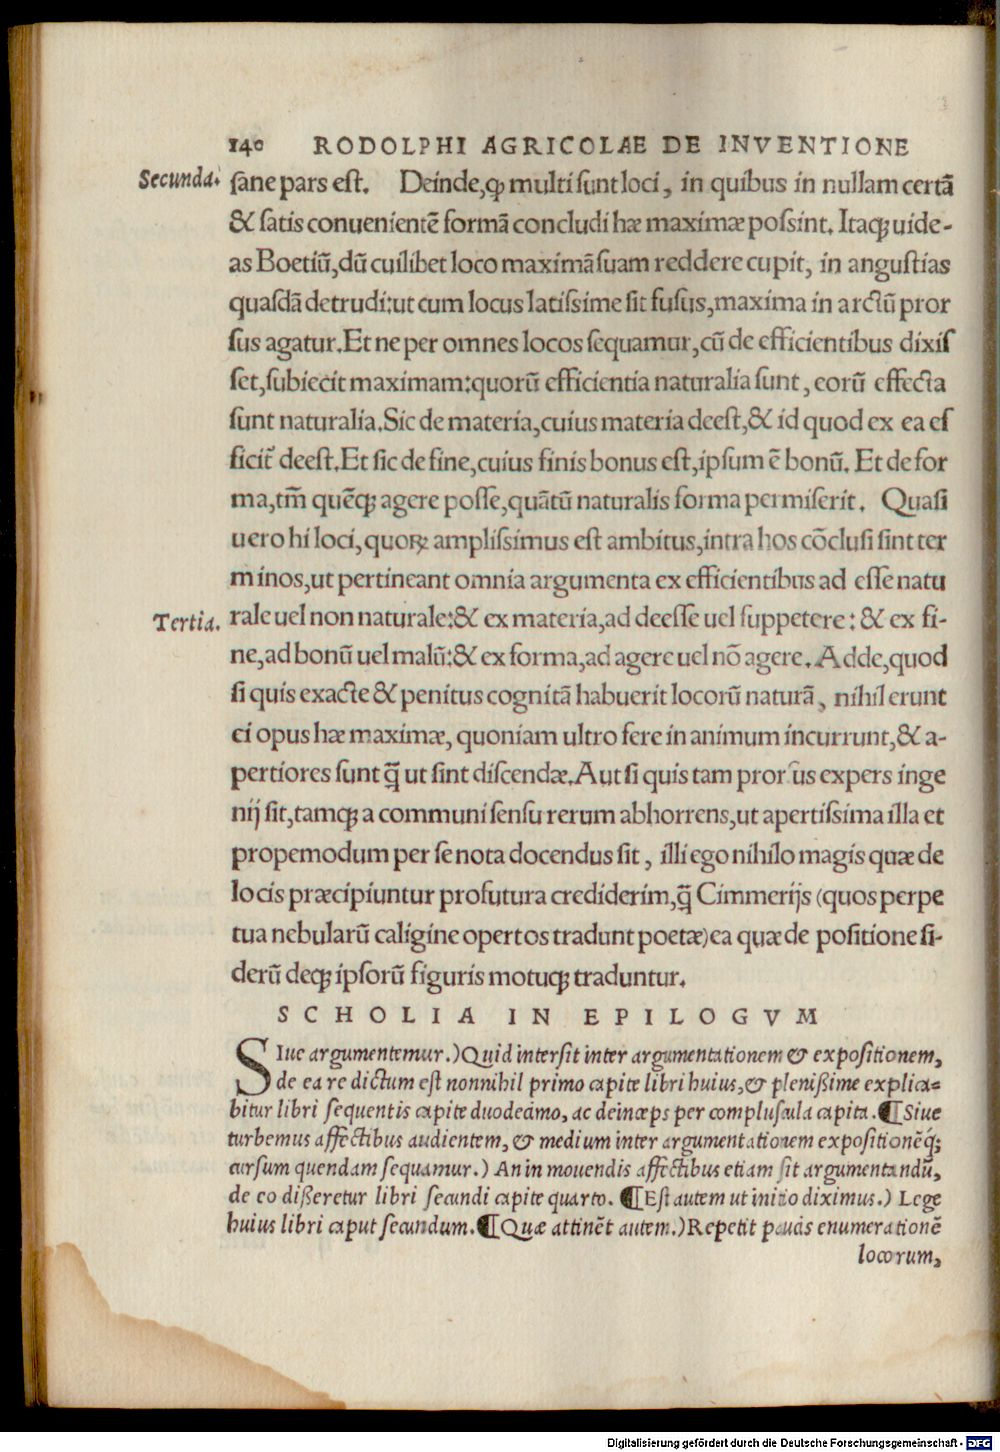 140 RODOLPHI AGRICOLAE DE INVENTIONE
Secunda. ſane pars eſt. Deinde, ꝙ multi ſunt loci, in quibus in nullam certā
& ſatis conuenientē formā concludi hæ maximæ poſsint. Itaqꝫ uide-
as Boetiū, dū cuilibet loco maximā ſuam reddere cupit, in anguſtias
quaſdā detrudi: ut cum locus latiſsime ſit fuſus, maxima in arctū pror
ſus agatur. Et ne per omnes locos ſequamur, cū de efficientibus dixiſ
ſet, ſubiecit maximam: quorū efficientia naturalia ſunt, eorū effecta
ſunt naturalia. Sic de materia, cuius materia deeſt, & id quod ex ea ef
ficit᷑ deeſt. Et ſic de fine, cuius finis bonus eſt, ipſum ē bonū. Et de for
ma, tm̄ quēqꝫ agere poſſe, quātū naturalis forma permiſerit. Quaſi
uero hi loci, quoꝝ ampliſsimus eſt ambitus, intra hos cōcluſi ſint ter
minos, ut pertineant omnia argumenta ex efficientibus ad eſſe natu
Tertia. rale uel non naturale: & ex materia, ad deeſſe uel ſuppetere: & ex fi-
ne, ad bonū uel malū: & ex forma, ad agere uel nō agere. Adde, quod
ſi quis exacte & penitus cognitā habuerit locorū naturā, nihil erunt
ei opus hæ maximæ, quoniam ultro fere in animum incurrunt, & a-
pertiores ſunt q̄ ut ſint diſcendæ. Aut ſi quis tam prorſus expers inge
nij ſit, tamqꝫ a communi ſenſu rerum abhorrens, ut apertiſsima illa et
propemodum per ſe nota docendus ſit, illi ego nihilo magis quæ de
locis præcipiuntur profutura crediderim, q̄ Cimmerijs (quos perpe
tua nebularū caligine opertos tradunt poetæ) ea quæ de poſitione ſi-
derū deqꝫ ipſorū figuris motuqꝫ traduntur.
SCHOLIA IN EPILOGVM
SIue argumentemur.) Quid interſit inter argumentationem & expoſitionem,
de ea re dictum eſt nonnihil primo capite libri huius, & plenißime explica=
bitur libri ſequentis capite duodecimo, ac deinceps per compluſcula capita. ¶ Siue
turbemus affectibus audientem, & medium inter argumentationem expoſitionēq́ꝫ
curſum quendam ſequamur.) An in mouendis affectibus etiam ſit argumentandū,
de eo dißeretur libri ſecundi capite quarto. ¶ Eſt autem ut initio diximus.) Lege
huius libri caput ſecundum. ¶ Quæ attinēt autem.) Repetit paucis enumerationē
locorum,
Digitalisierung gefördert durch die Deutsche Forschungsgemeinschaft - DFG